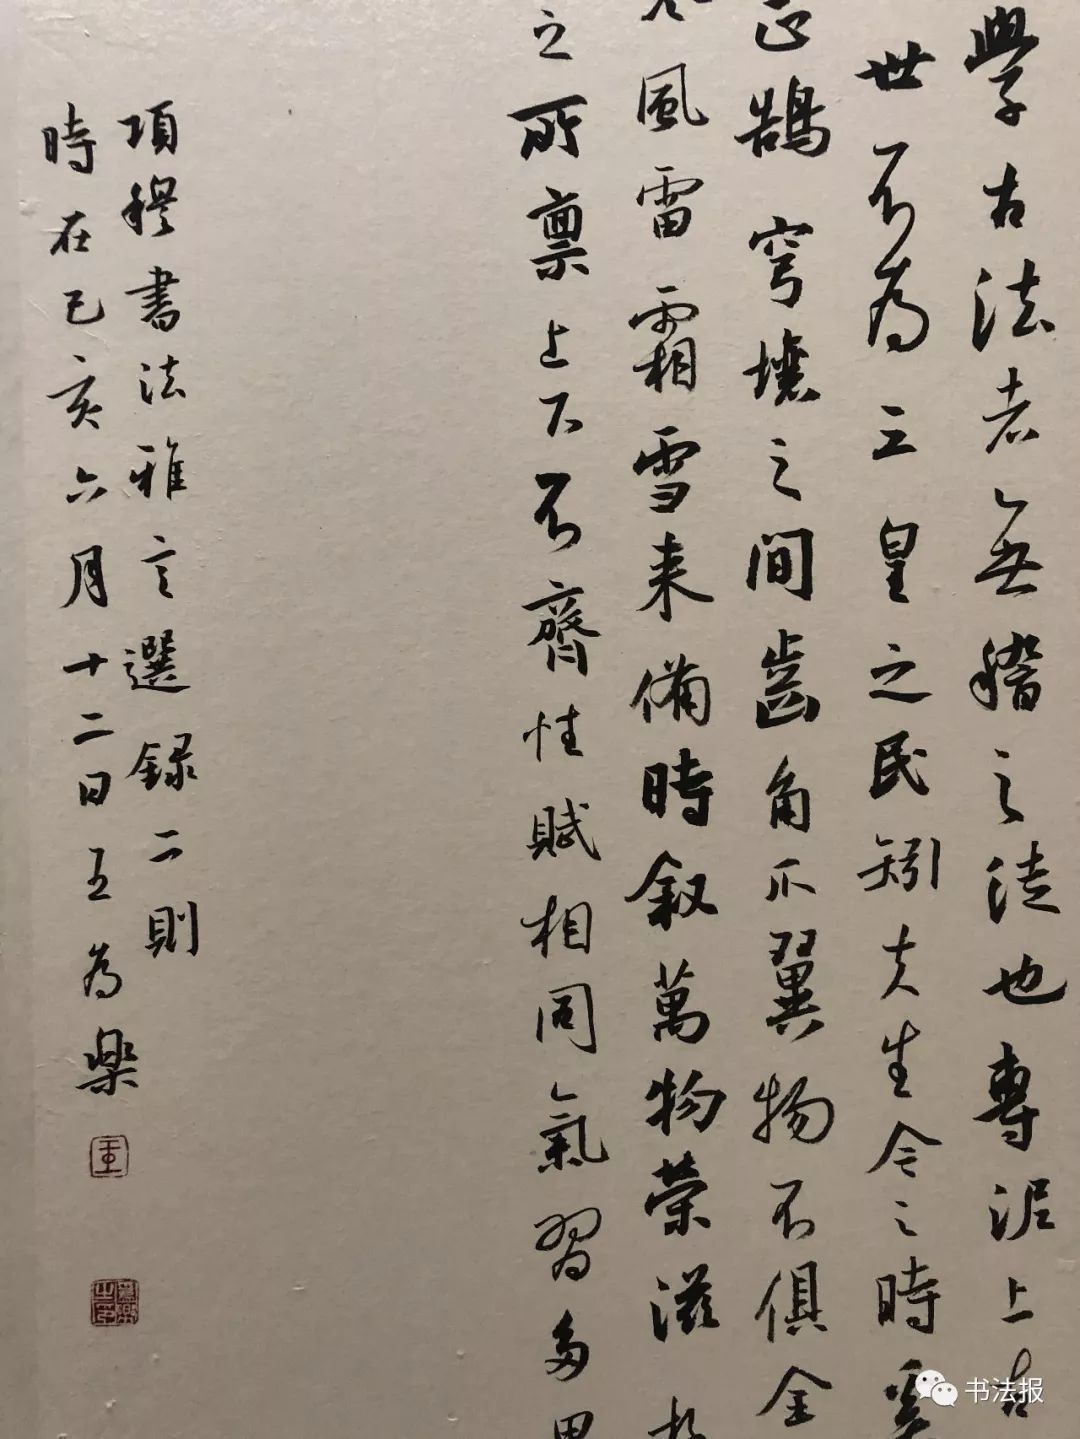 學古法者無稽之徒也專泥上古
世不為三皇之民矧夫生今之時奚
正鵠穹壤之間齒角爪翼物不俱全
風雷霜雪来備時叙萬物荣滋
之所禀上下不齊性賦相同氣習多異
項穆書法雅言選録二則
時在己亥六月十二日王為樂
王
书法报